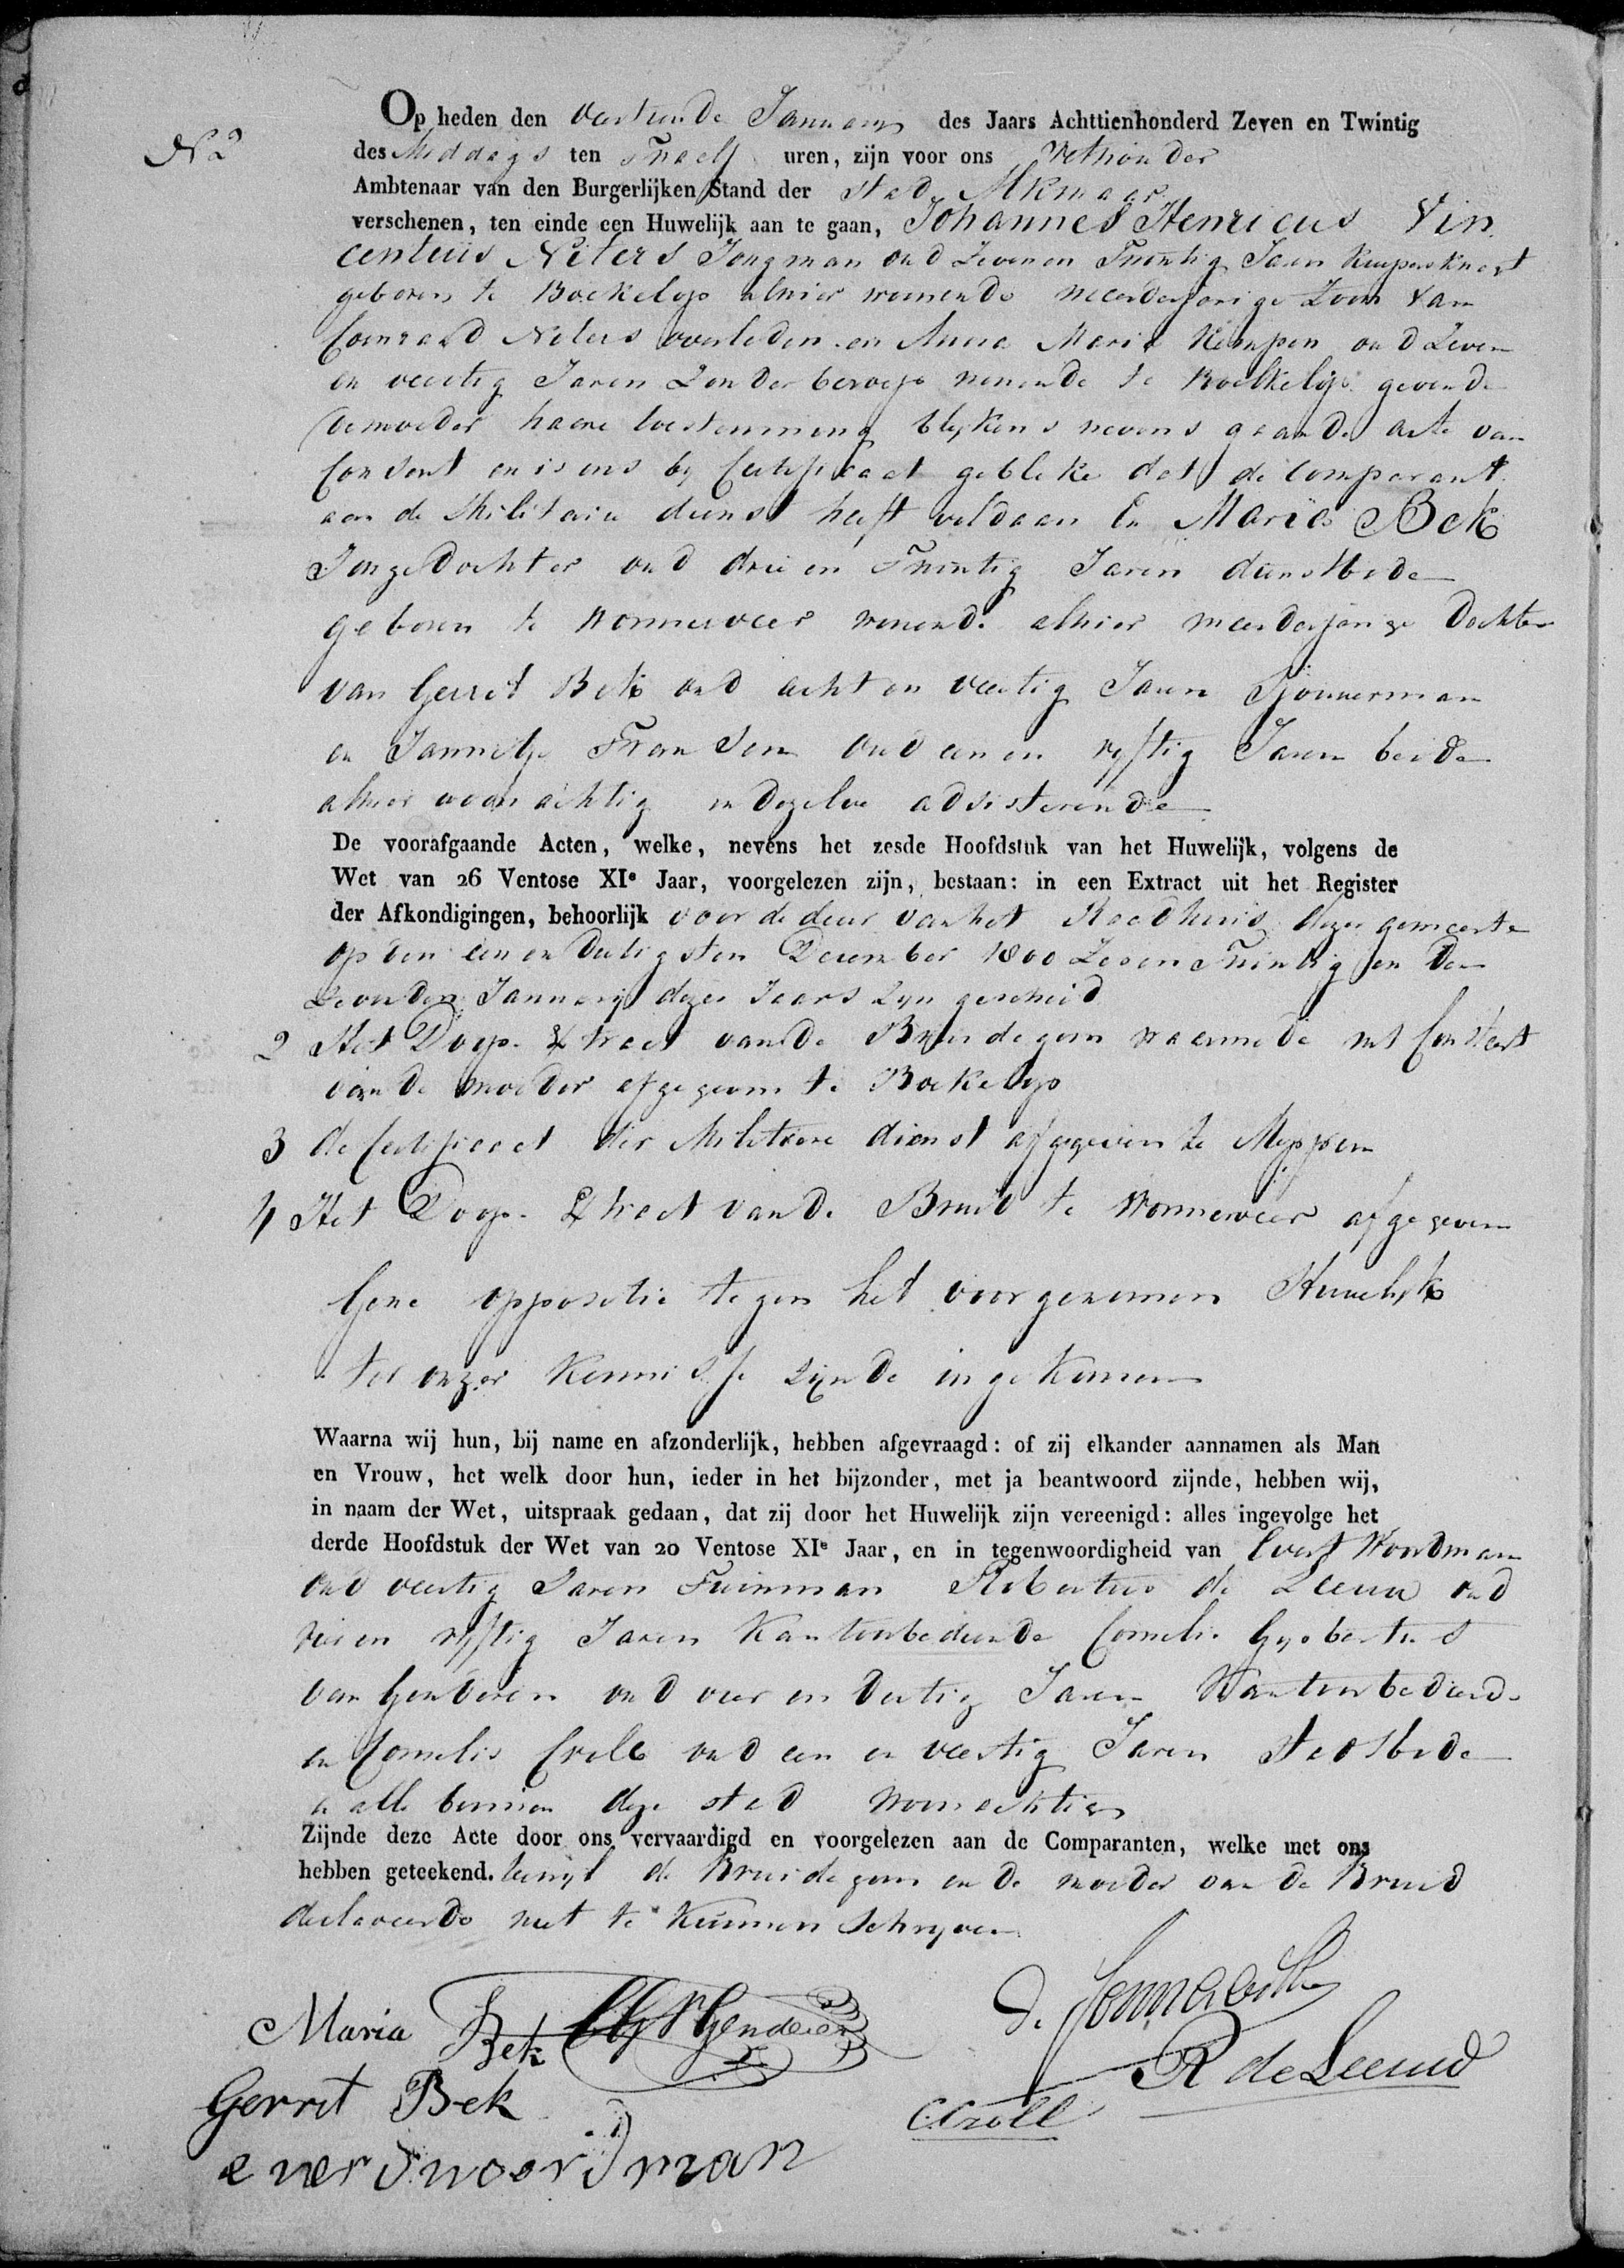 N 2
Op heden den veertiende Januarij des Jaars Achttienhonderd Zeven en Twintig
des Middags ten Twaelf uren, zijn voor ons Wethouder
Ambtenaar van den Burgerlijken Stand der Stad Alkmaar
verschenen, ten einde een Huwelijk aan te gaan, Johannes Henricus Vin
centius Neters Jongman oud Zeven en Twintig Jaren Kuipersknegt
geboren te Boekelo alhier wonende meerderjarige Zoon van
Coenraad Neters overleden en Anna Maria Kempen oud Zeven
en veertig Jaren Zonder beroep wonende te gevende
de moeder haere toestemming blijkens nevens gaande acte van
Consent en is ons by Certificaat gebleke dat de comparant
aan de Militaire dienst heeft voldaan En Maria Bek
Jonge Dochter oud drie en Twintig Jaren dienstbode
geboren te Wormerveer wonende alhier meerderjarige Dochter
van Gerrit Bek oud acht en veertig Jaren Sjouwerman
en Jannetje Fransen oud een en vyftig Jaren beide
alhier woonachtig en dezelve adsisterende
De voorafgaande Acten, welke, nevens het zesde Hoofdstuk van het Huwelijk, volgens de
Wet van 26 Ventose XIe Jaar, voorgelezen zijn, bestaan: in een Extract uit het Register
der Afkondigingen, behoorlijk voor de deur van het Raedhuis dezer gemeente
op den een en dertigsten December 1800 Zes en Twintig en den
Zevenden Januarij dezes Jaars Zyn geschied
2 Het Doop Extract van de Bruidegom waermede met Consent
van de moeder afgegeven te
3 de Certificaat der Militaire dienst afgegeven te Meppen
4 Het Doop Extract van de Bruid te Wormerveer afgegeven
Gene oppositie tegen het voorgenomen Huwelijk
tot onzer Kennisse Zijnde ingekomen
Waarna wij hun, bij name en afzonderlijk, hebben afgevraagd: of zij elkander aannamen als Man
en Vrouw, het welk door hun, ieder in het bijzonder, met ja beantwoord zijnde, hebben wij,
in naam der Wet, uitspraak gedaan, dat zij door het Huwelijk zijn vereenigd: alles ingevolge het
derde Hoofdstuk der Wet van 20 Ventose XIe Jaar, en in tegenwoordigheid van Evert Woordman
oud veertig Jaren Tuinman Robertus de Leeuw oud
vier en vyftig Jaren Kantoorbediende Cornelis Gysbertus
van Genderen oud vier en dertig Jaren Kantoorbediende
en Cornelis Croll oud een en veertig Jaren Stadsbode
en alle binnen deze stad woonachtig
Zijnde deze Acte door ons vervaardigd en voorgelezen aan de Comparanten, welke met ons
hebben geteekend. terwyl de Bruidegom en de moeder van de Bruid
declareerde niet te Kunnen Schryven
Maria Bek CGVGenderen
Gerrit Bek R de Leeuw
CCroll
everd woordman